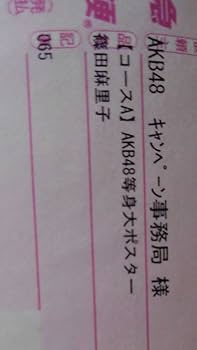 急便®
AKB48 キャンペーン事務局 様
品
【コースA】AKB48等身大ポスター
篠田麻里子
記
065